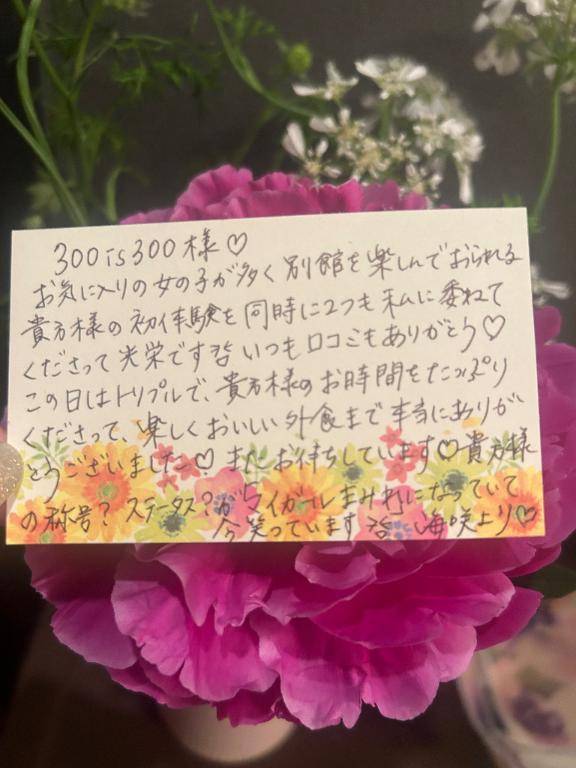 300is300様♡
お気に入りの女の子が多く別館を楽しんでおられる
貴方様の初体験を同時に2つも私に委ねて
くださって光栄です いつも口コミもありがとう♡
この日はトリプルで、貴方様のお時間をたっぷり
くださって、楽しくおいしい外食まで本当にありが
とうございました♡ またお待ちしています♡貴方様
の称号?ステータス?がマイガールまみれになっていて
今笑っています 海咲より♡